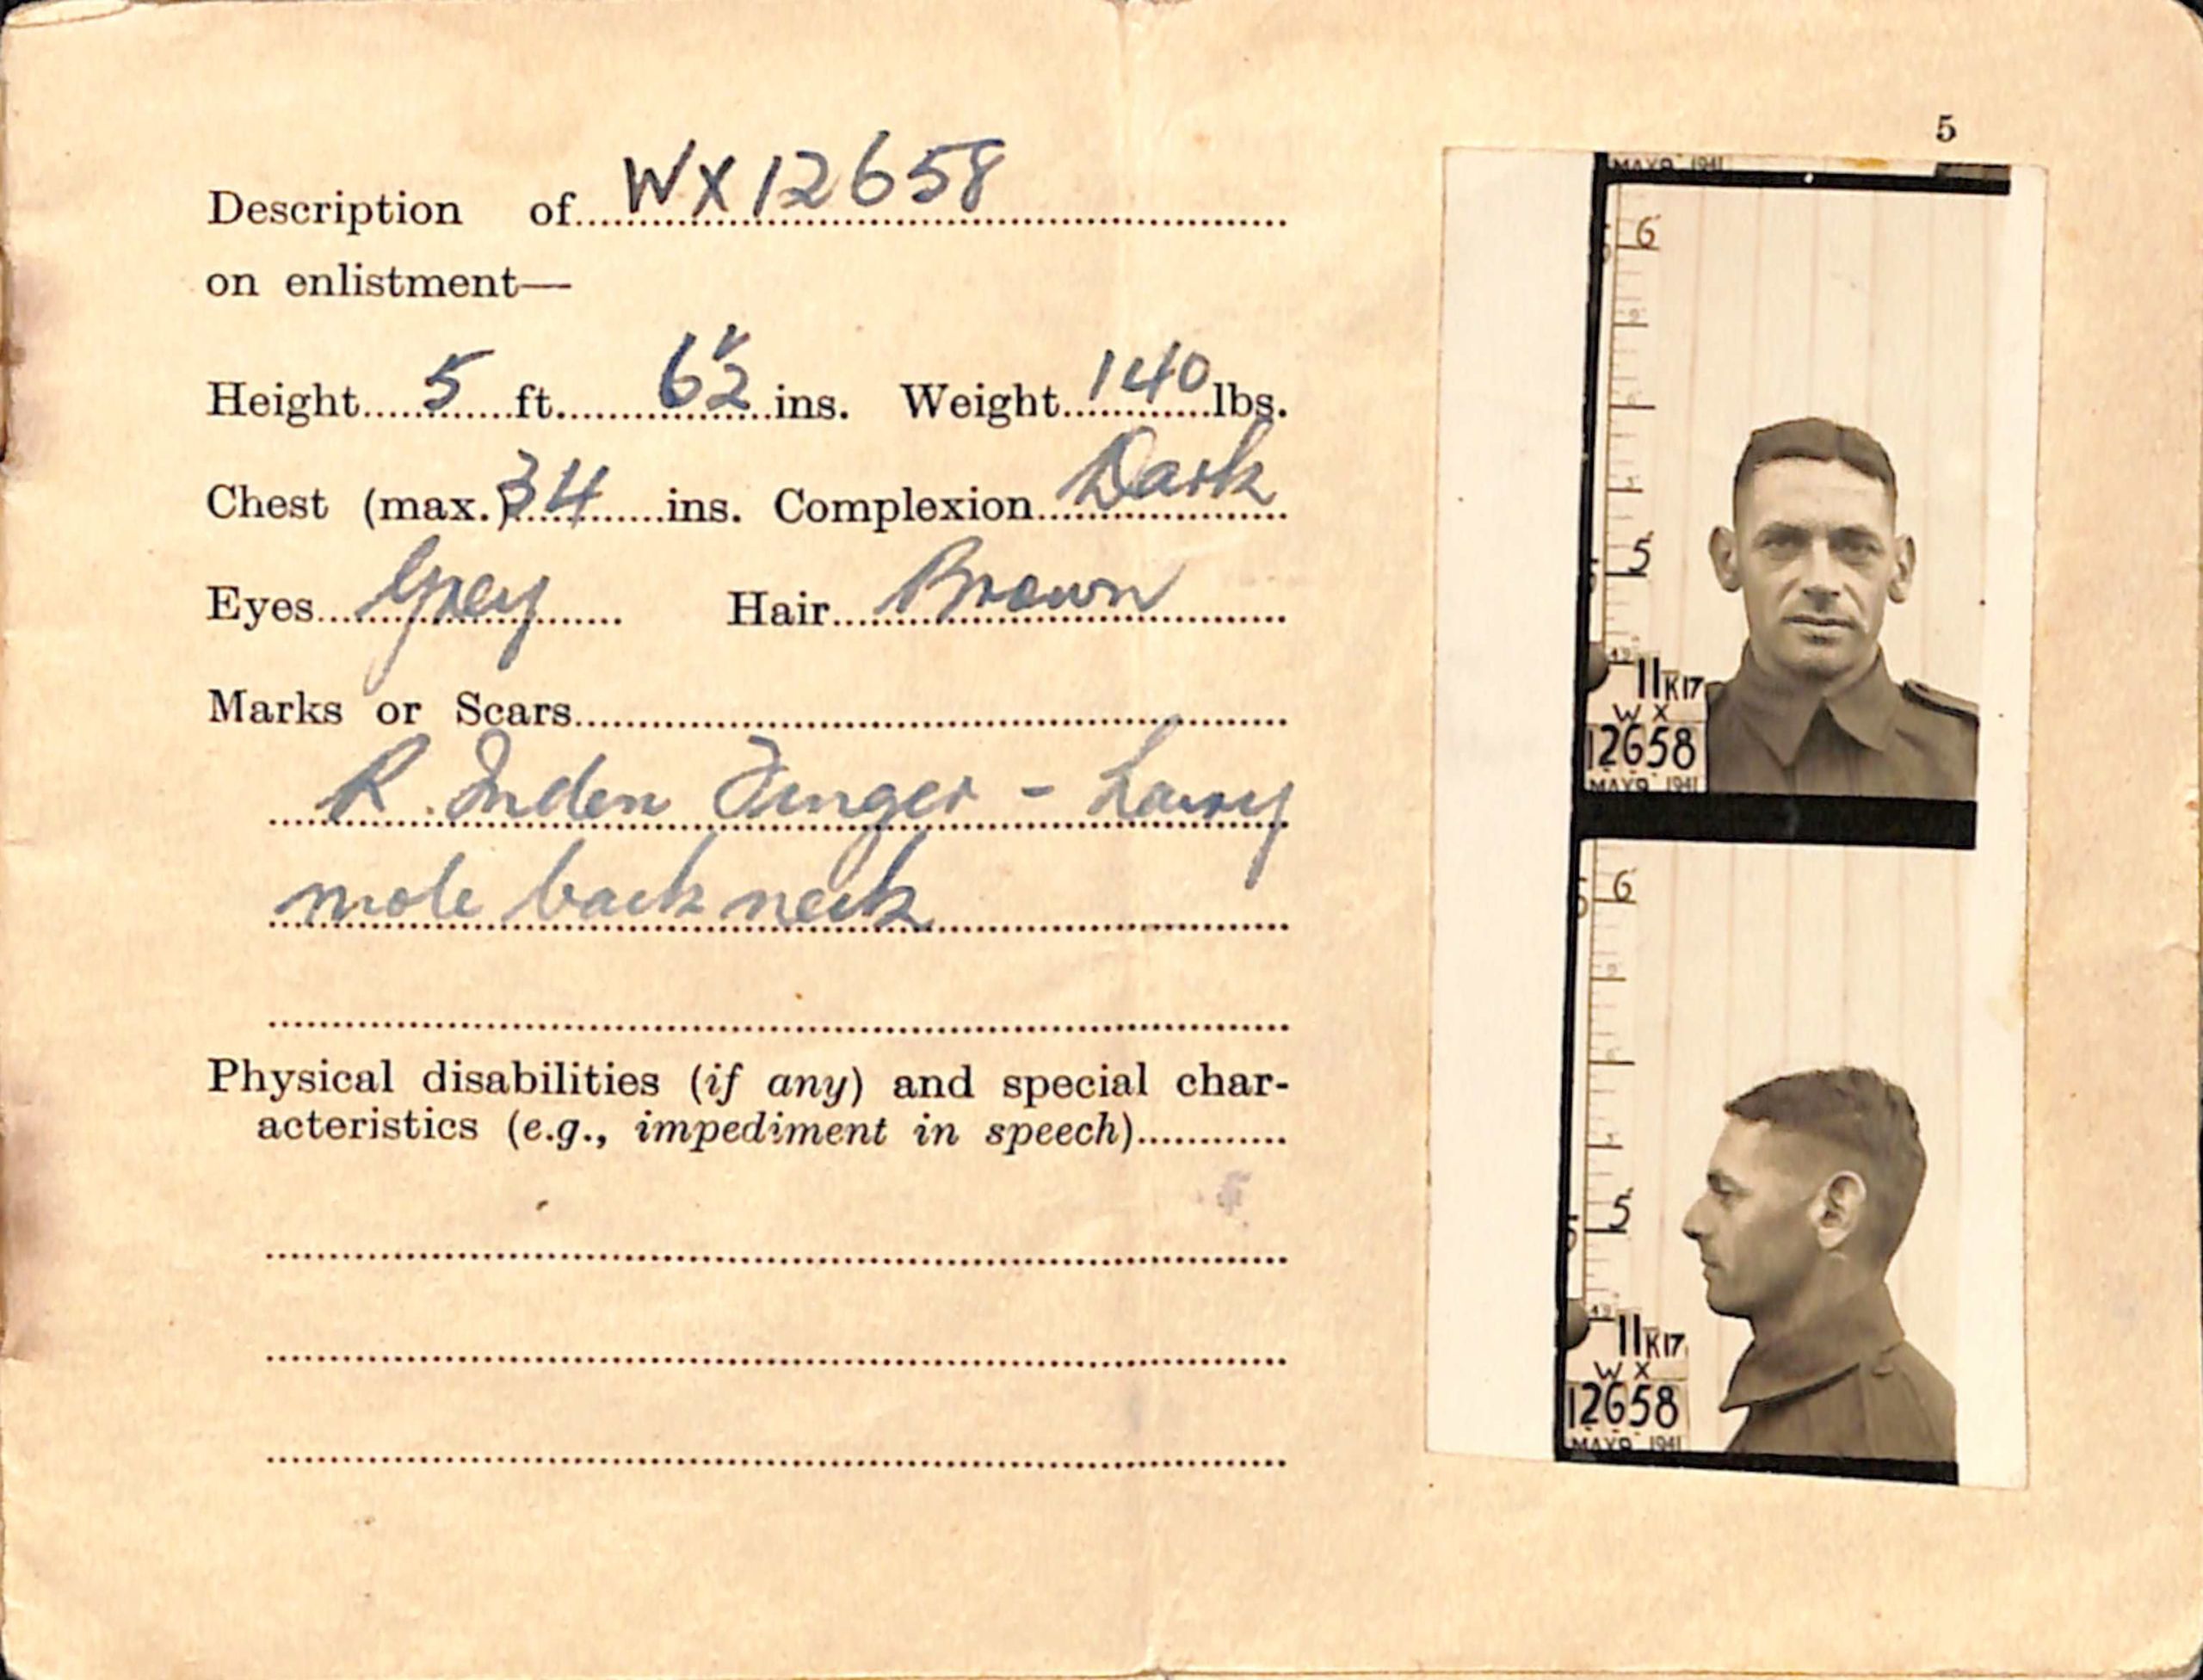 5
Description of WX12658
on enlistment—
Height 5 ft. 6½ ins. Weight 140 lbs.
Chess (max.) 34 ins. Complexion Dark
Eyes Grey Hair Brown
Marks or Scars
R. Index Finger -
mole back neck
Physical disabilities (if any) and special char-
acteristics (e.g., impediment in speech)
MAY9 1941
6
5
11K17
WX
12658
MAY9 1941
6
5
11K17
WX
12658
MAY9 1941